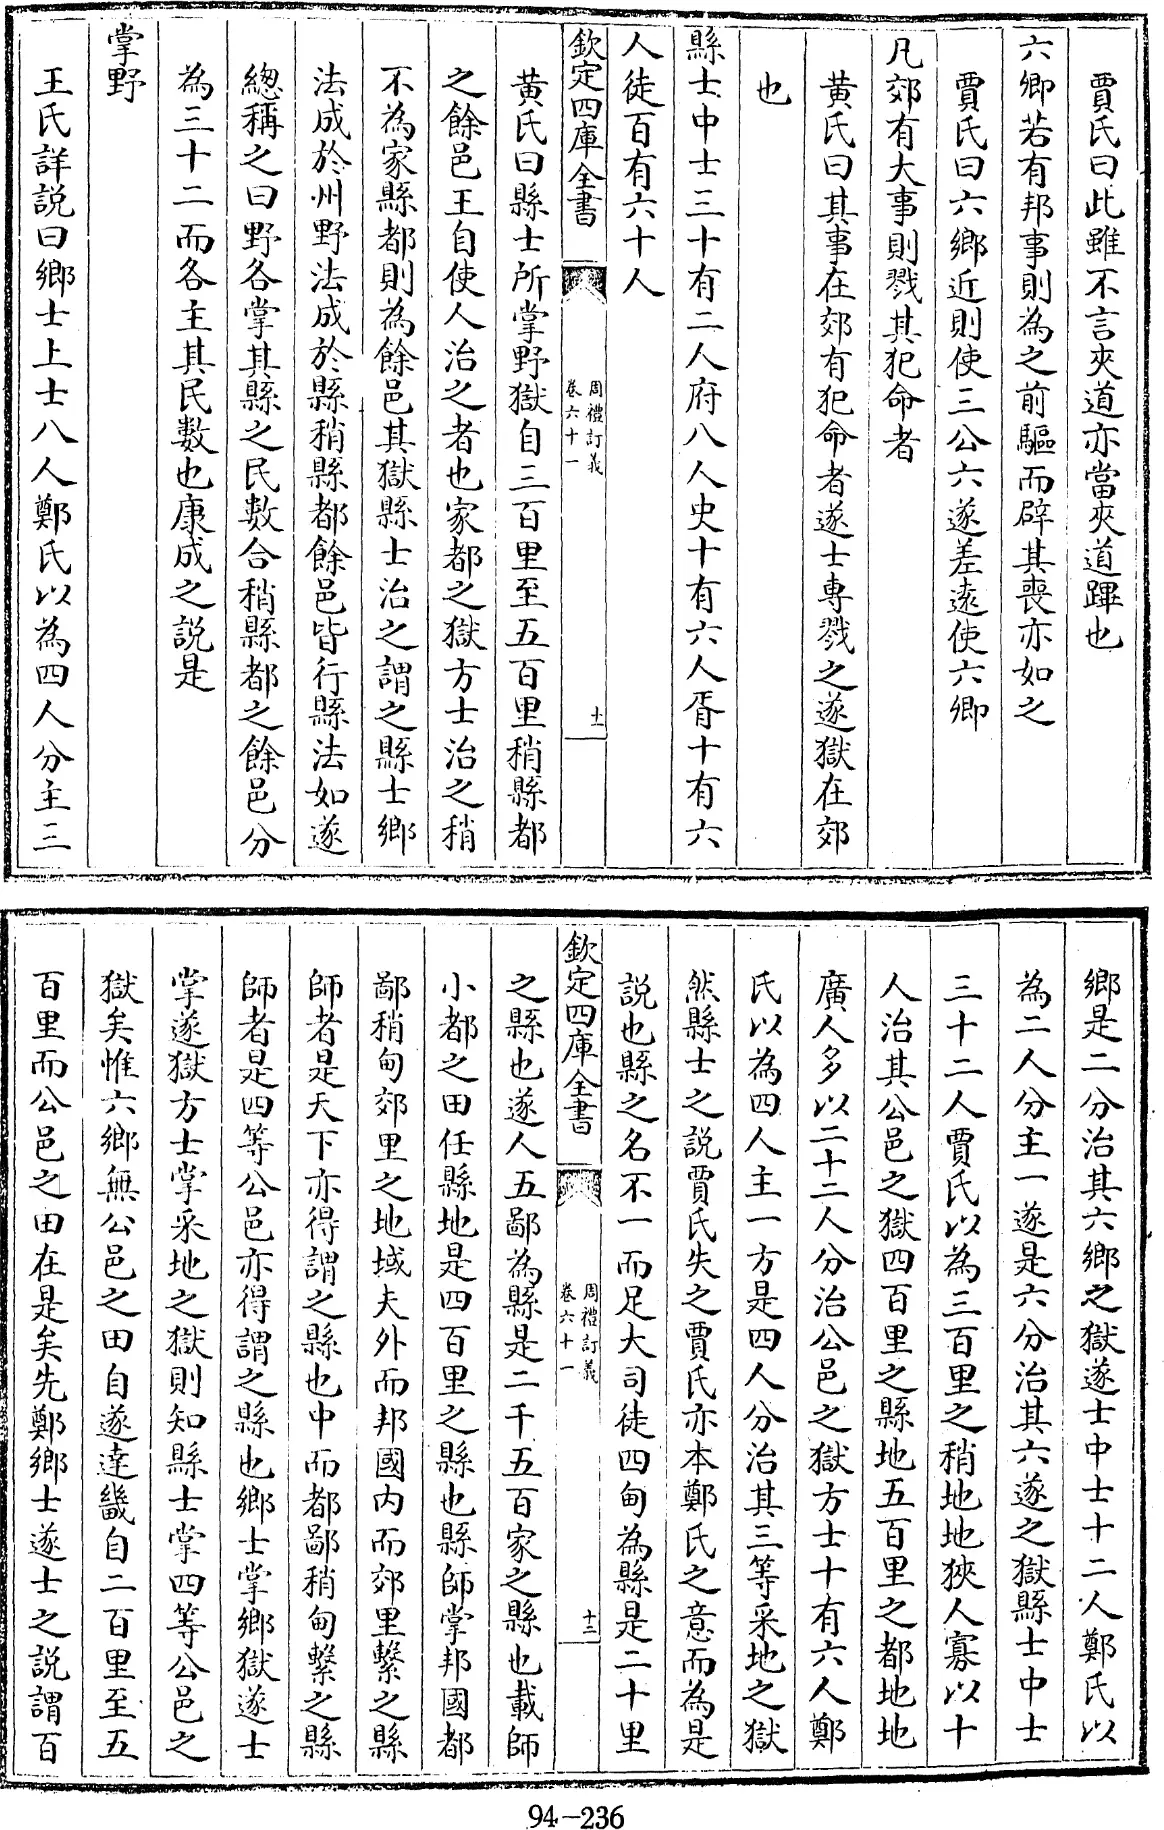 賈氏曰此雖不言夾道亦當夾道蹕也
六卿若有邦事則為之前驅而辟其喪亦如之
賈氏曰六鄉近則使三公六遂差遠使六卿
凡郊有大事則戮其犯命者
黃氏曰其事在郊有犯命者遂士專戮之遂獄在郊
也
縣士中士三十有二人府八人史十有六人胥十有六
人徒百有六十人
欽定四庫全書
周禮訂義
卷六十一
十二
黃氏曰縣士所掌野獄自三百里至五百里稍縣都
之餘邑王自使人治之者也家都之獄方士治之稍
不為家縣都則為餘邑其獄縣士治之謂之縣士鄉
法成於州野法成於縣稍縣都餘邑皆行縣法如遂
總稱之曰野各掌其縣之民數合稍縣都之餘邑分
為三十二而各主其民數也康成之說是
掌野
王氏詳説曰鄉士上士八人鄭氏以為四人分主三
鄉是二分治其六鄉之獄遂士中士十二人鄭氏以
為二人分主一遂是六分治其六遂之獄縣士中士
三十二人賈氏以為三百里之稍地地狹人寡以十
人治其公邑之獄四百里之縣地五百里之都地地
廣人多以二十二人分治公邑之獄方士十有六人鄭
氏以為四人主一方是四人分治其三等采地之獄
然縣士之説賈氏失之賈氏亦本鄭氏之意而為是
説也縣之名不一而足大司徒四甸為縣是二十里
欽定四庫全書
周禮訂義
卷六十一
十三
之縣也遂人五鄙為縣是二千五百家之縣也載師
小都之田任縣地是四百里之縣也縣師掌邦國都
鄙稍甸郊里之地域夫外而邦國内而郊里繫之縣
師者是天下亦得謂之縣也中而都鄙稍甸繫之縣
師者是四等公邑亦得謂之縣也鄉士掌鄉獄遂士
掌遂獄方士掌采地之獄則知縣士掌四等公邑之
獄矣惟六鄉無公邑之田自遂達畿自二百里至五
百里而公邑之田在是矣先鄭鄉士遂士之説謂百
94-236